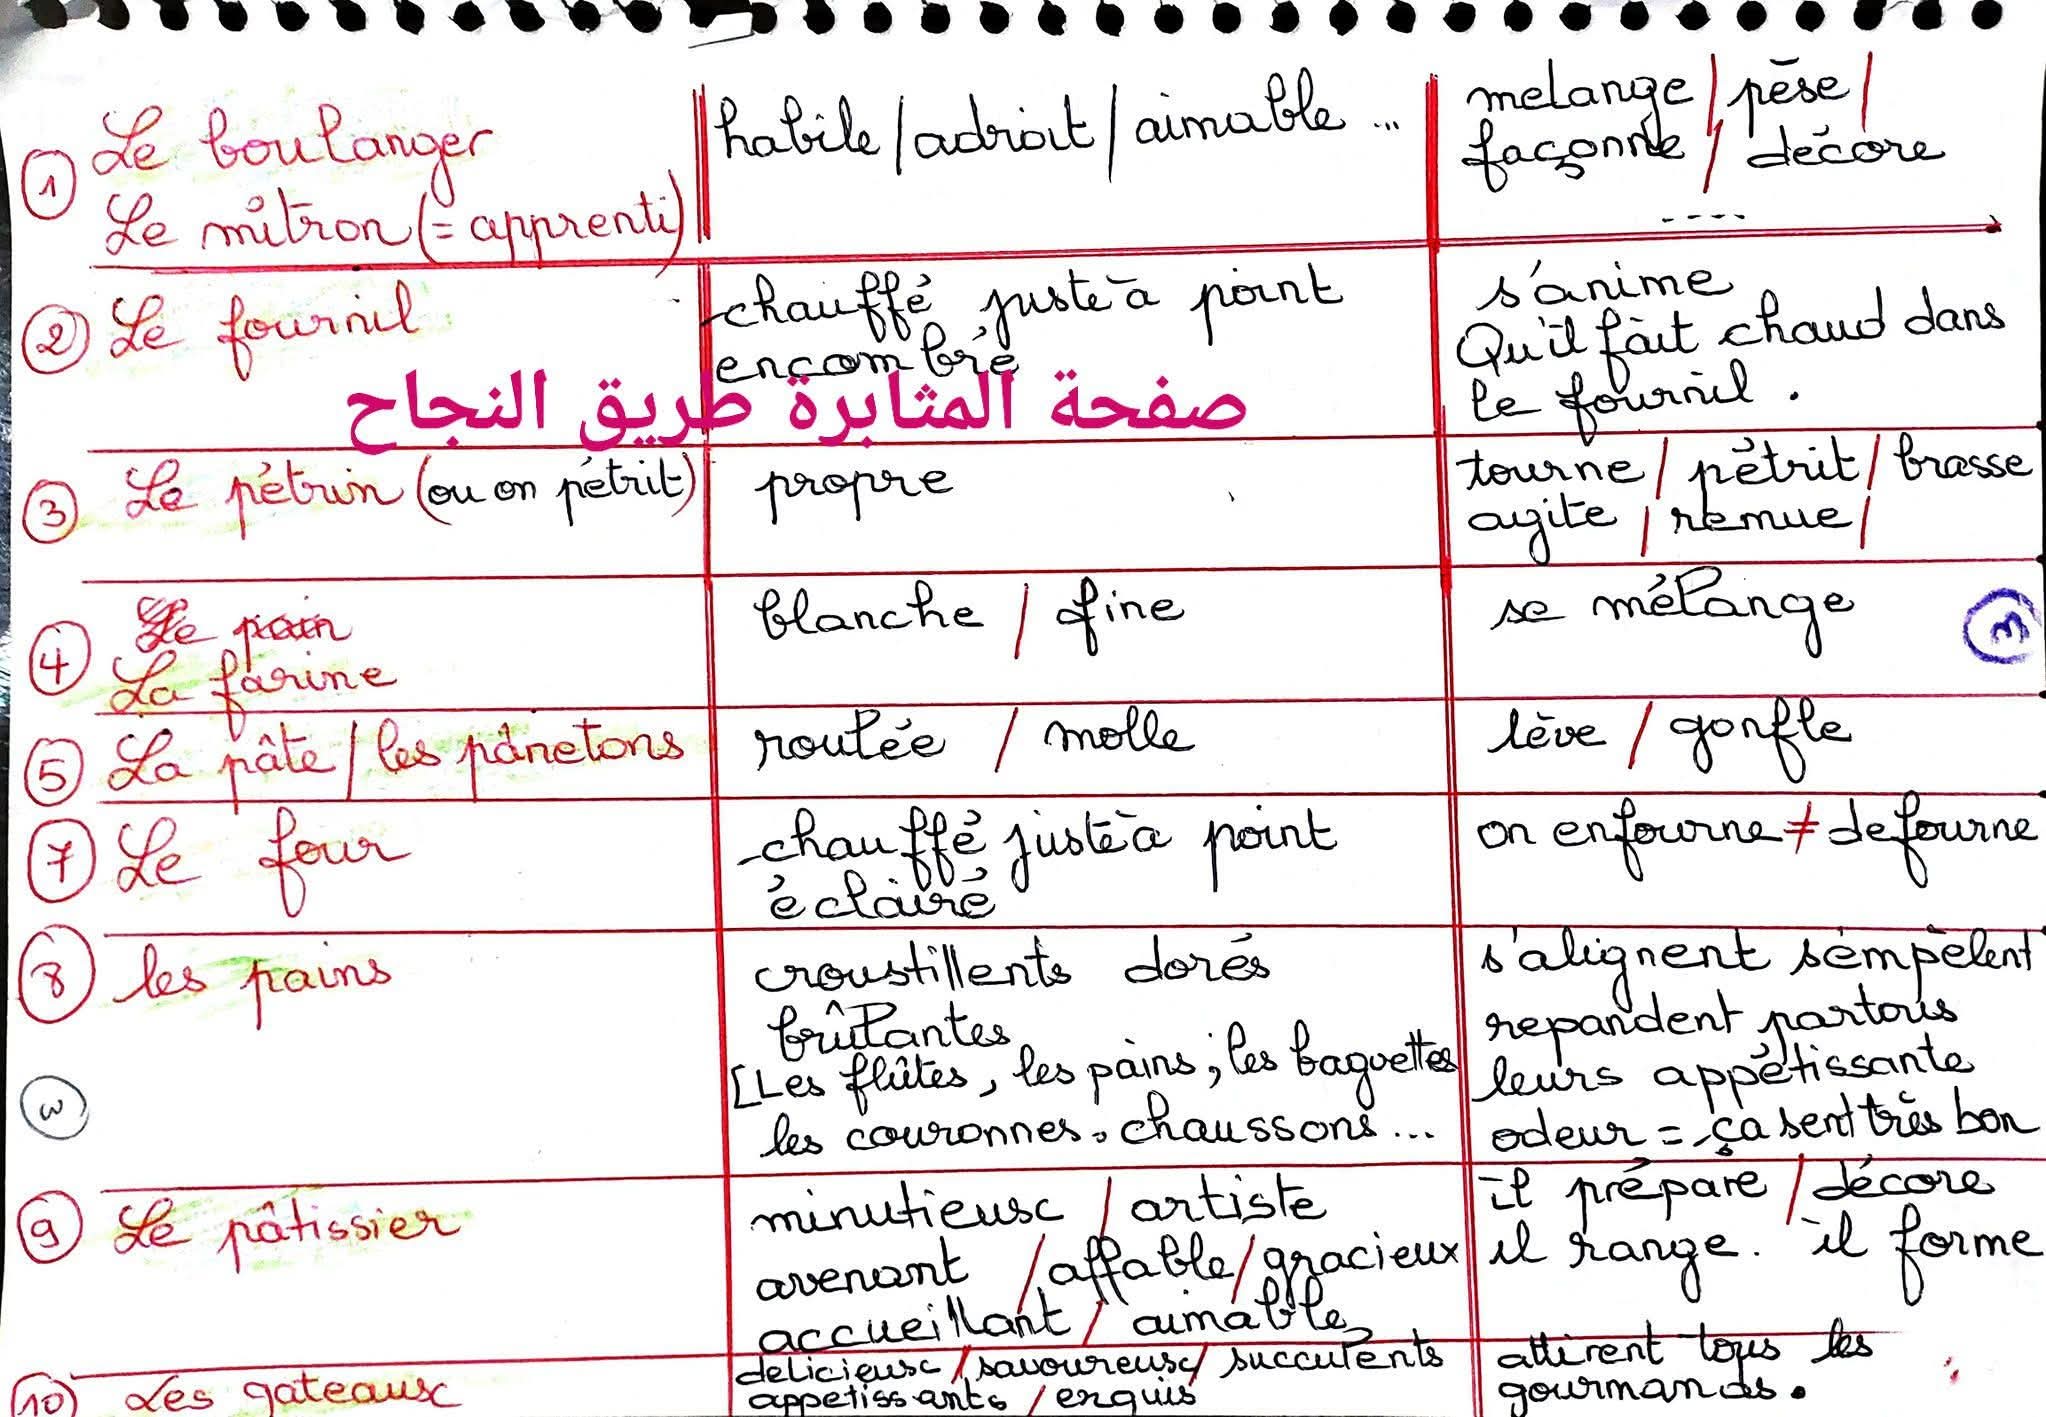 ① Le boulanger
Le mitron (= apprenti)
habile / adroit / aimable ...
melange / pèse /
façonne / décore
....
② Le fournil
-chauffé juste à point
encombré
s'anime
Qu'il fait chaud dans
le fournil .
صفحة المثابرة طريق النجاح
③ Le pétrin (ou on pétrit)
propre
tourne / pétrit / brasse
agite / remue /
④ Le pain
La farine
blanche / fine
se mélange
3
⑤ La pâte / les panetons
roulée / molle
lève / gonfle
⑦ Le four
-chauffé juste à point
éclairé
on enfourne ≠ defourne
⑧ les pains
croustillents dorés
brûlantes
[Les flûtes, les pains; les baguettes
les couronnes, chaussons...
s'alignent s'empèlent
repandent partous
leurs appétissante
odeur = ça sent très bon
⑨ Le pâtissier
minutieux / artiste
avenant / affable / gracieux
accueillant / aimable
il prépare / décore
il range. il forme
⑩ Les gateaux
delicieux / savoureux / succulents
appetissants / exquis
attirent tous les
gourmands.